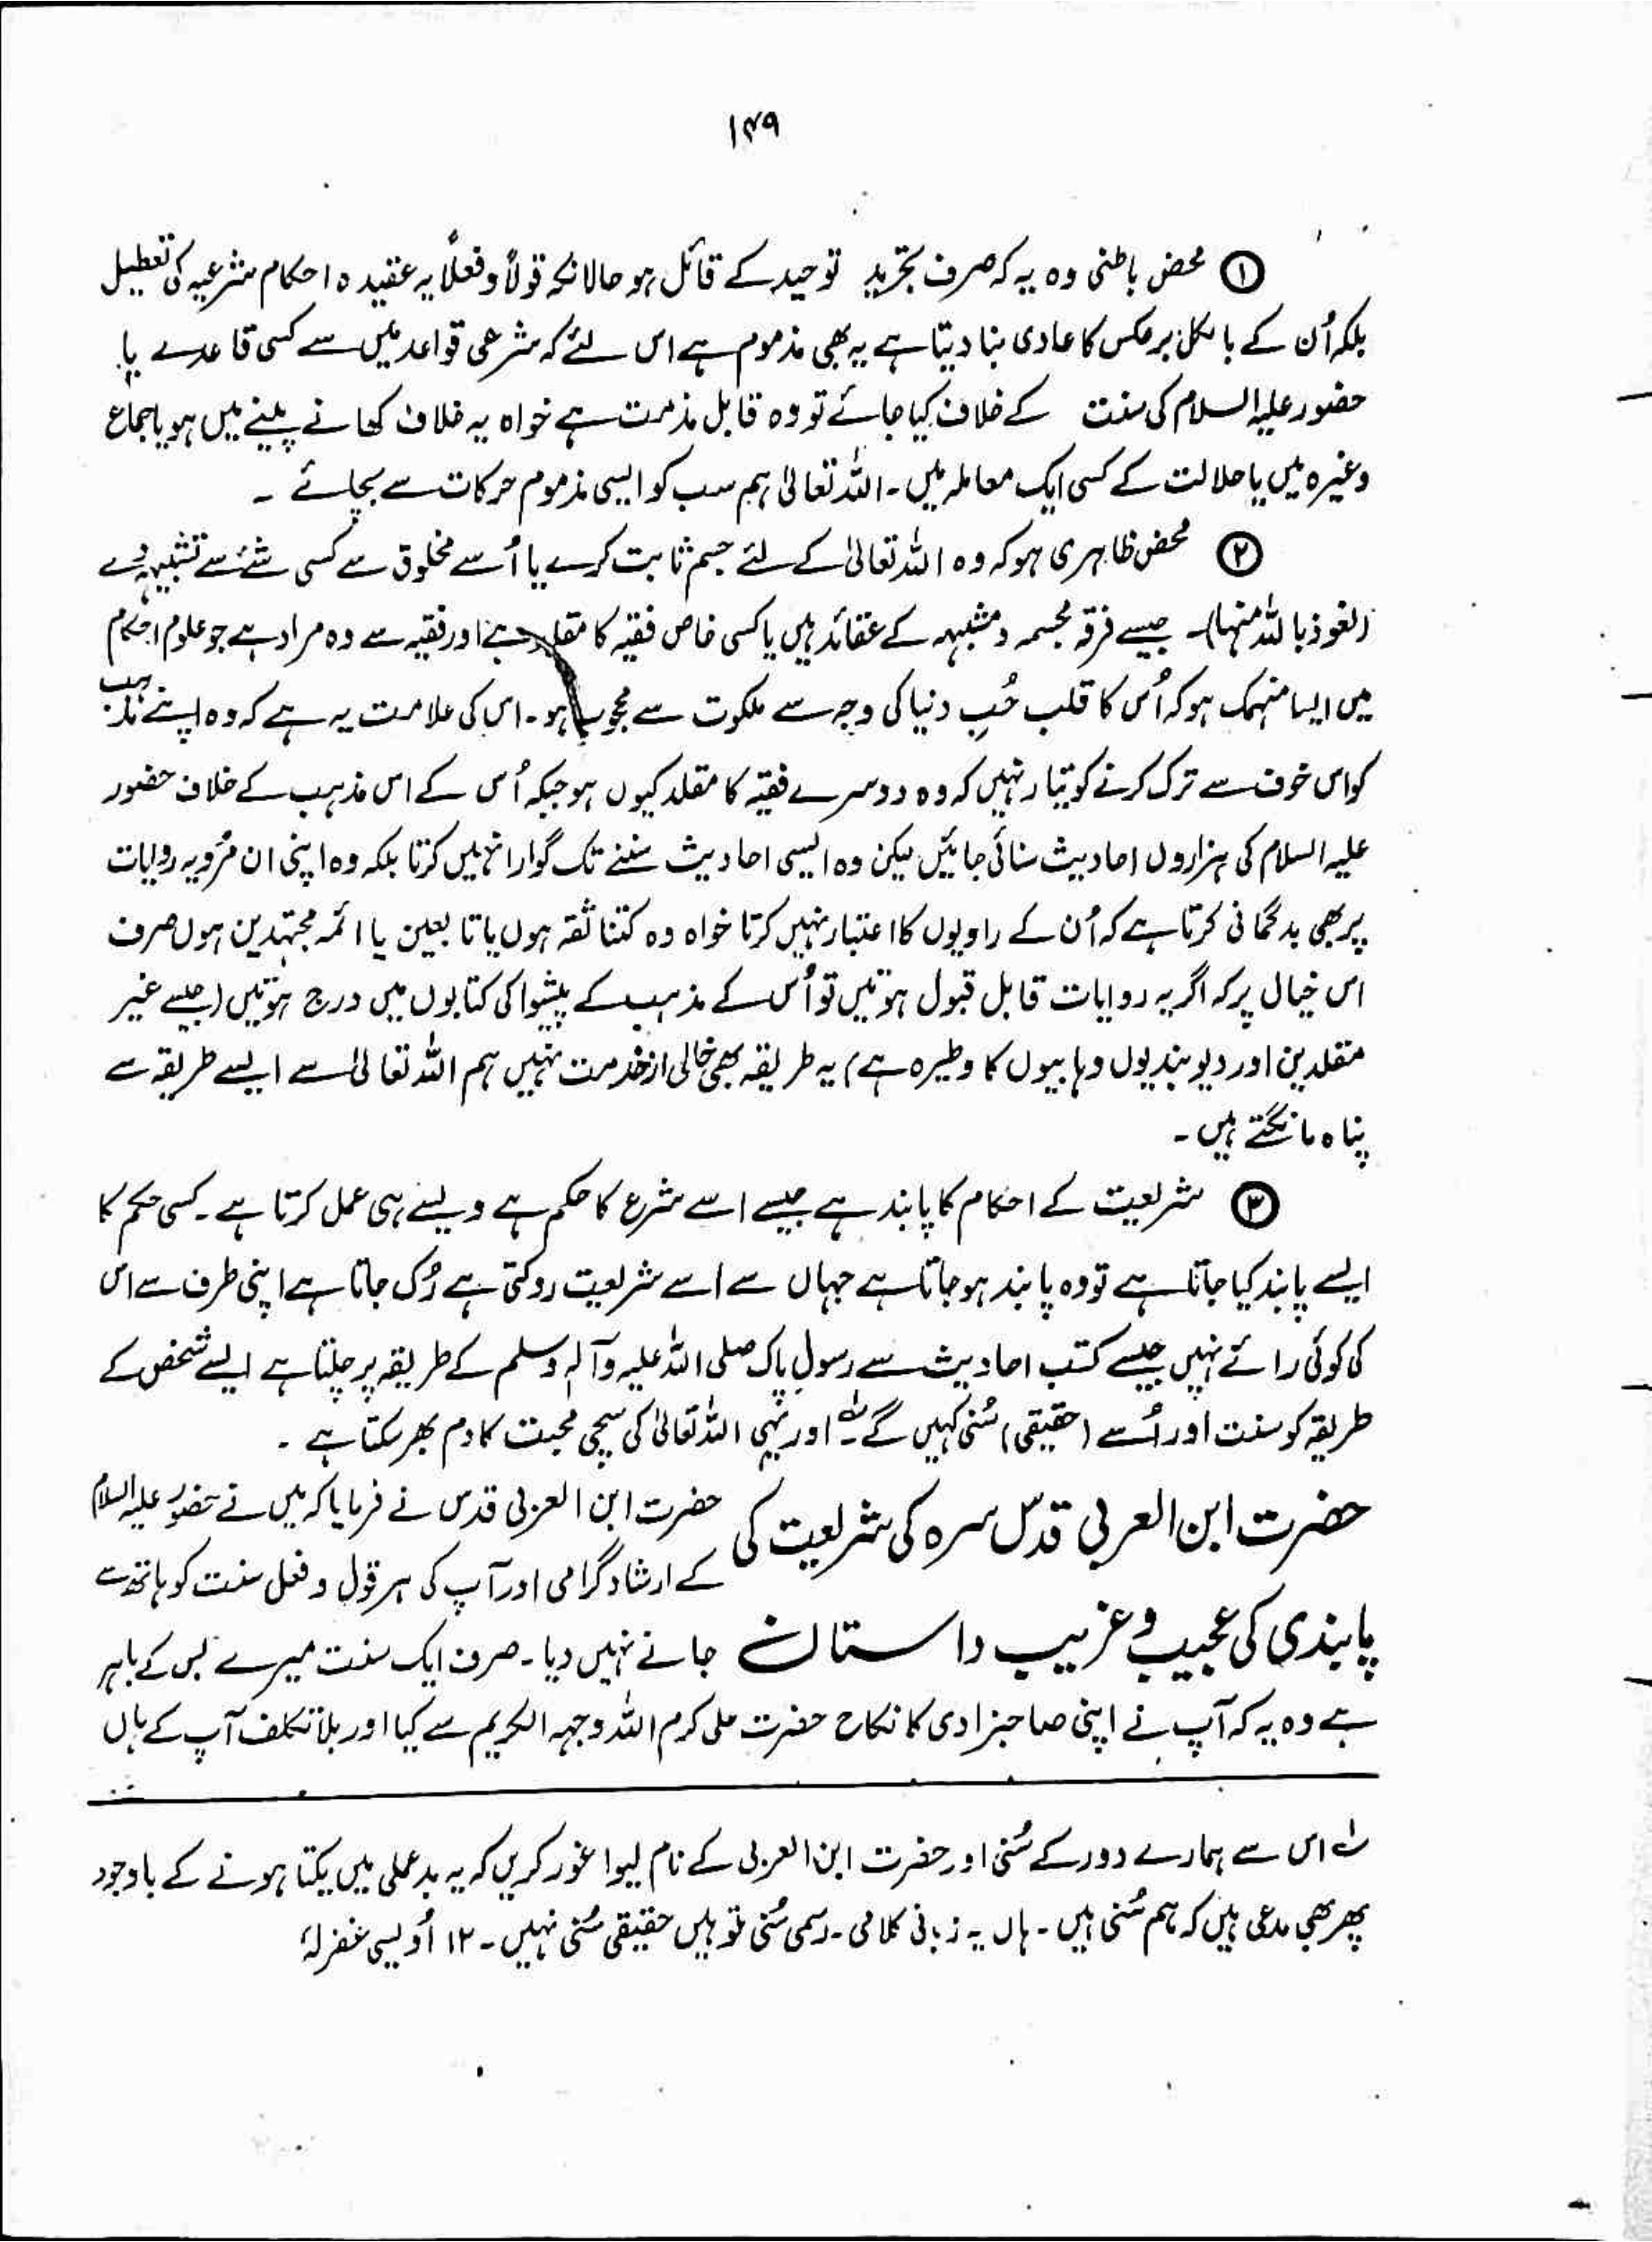 ۱۴۹
① محض باطنی وہ یہ کہ صرف تجرید توحید کے قائل ہو حالانکہ قولاً و فعلاً یہ عقیدہ احکام شرعیہ کی تعطیل
بلکہ اُن کے بالکل برعکس کا عادی بنا دیتا ہے یہ بھی مذموم ہے اس لئے کہ شرعی قواعد میں سے کسی قاعدے یا
حضور علیہ السلام کی سنت کے خلاف کیا جائے تو وہ قابل مذمت ہے خواہ یہ خلاف کھانے پینے میں ہو یا جماع
وغیرہ میں یا حلالت کے کسی ایک معاملہ میں ۔ اللہ تعالیٰ ہم سب کو ایسی مذموم حرکات سے بچائے ۔
② محض ظاہری ہو کہ وہ اللہ تعالیٰ کے لئے جسم ثابت کرے یا اُسے مخلوق سے کسی شئے سے تشبیہ دے
(نعوذ باللہ منہا)۔ جیسے فرقہ مجسمہ و مشبہہ کے عقائد ہیں یا کسی خاص فقیہ کا مقلد ہے اور فقیہ سے وہ مراد ہے جو علوم احکام
میں ایسا منہمک ہو کہ اُس کا قلب حُبِ دنیا کی وجہ سے ملکوت سے محجوب ہو ۔ اس کی علامت یہ ہے کہ وہ اپنے مذہب
کو اس خوف سے ترک کرنے کو تیار نہیں کہ وہ دوسرے فقیہ کا مقلد کیوں ہو جبکہ اُس کے اس مذہب کے خلاف حضور
علیہ السلام کی ہزاروں احادیث سنائی جائیں لیکن وہ ایسی احادیث سننے تک گوارا نہیں کرتا بلکہ وہ اپنی ان مَرْویہ روایات
پر بھی بدگمانی کرتا ہے کہ اُن کے راویوں کا اعتبار نہیں کرتا خواہ وہ کتنا ثقہ ہوں یا تابعین یا ائمہ مجتہدین ہوں صرف
اس خیال پر کہ اگر یہ روایات قابل قبول ہوتیں تو اُس کے مذہب کے پیشوا کی کتابوں میں درج ہوتیں (جیسے غیر
مقلدین اور دیوبندیوں وہابیوں کا وطیرہ ہے) یہ طریقہ بھی خالی از خدمت نہیں ہم اللہ تعالیٰ سے ایسے طریقہ سے
پناہ مانگتے ہیں ۔
③ شریعت کے احکام کا پابند ہے جیسے اسے شرع کا حکم ہے ویسے ہی عمل کرتا ہے ۔ کسی حکم کا
ایسے پابند کیا جاتا ہے تو وہ پابند ہو جاتا ہے جہاں سے اسے شریعت روکتی ہے رُک جاتا ہے اپنی طرف سے اس
کی کوئی رائے نہیں جیسے کتب احادیث سے رسول پاک صلی اللہ علیہ وآلہٖ وسلم کے طریقہ پر چلتا ہے ایسے شخص کے
طریقہ کو سنت اور اُسے (حقیقی) سُنی کہیں گے ۔ اور یہی اللہ تعالیٰ کی سچی محبت کا دم بھر سکتا ہے ۔
حضرت ابن العربی قدس سرہ کی شریعت کی
پابندی کی عجیب و غریب داستان
حضرت ابن العربی قدس نے فرمایا کہ میں نے حضور علیہ السلام
کے ارشاد گرامی اور آپ کی ہر قول و فعل سنت کو ہاتھ سے
جانے نہیں دیا ۔ صرف ایک سنت میرے بس کے باہر
ہے وہ یہ کہ آپ نے اپنی صاحبزادی کا نکاح حضرت علی کرم اللہ وجہہ الکریم سے کیا اور بلا تکلف آپ کے ہاں
اس سے ہمارے دور کے سُنی اور حضرت ابن العربی کے نام لیوا غور کریں کہ یہ بدعملی میں یکتا ہونے کے باوجود
پھر بھی مدعی ہیں کہ ہم سُنی ہیں ۔ ہاں یہ زبانی کلامی ۔ رسمی سُنی تو ہیں حقیقی سُنی نہیں ۔ ۱۲ اُویسی غفرلہٗ